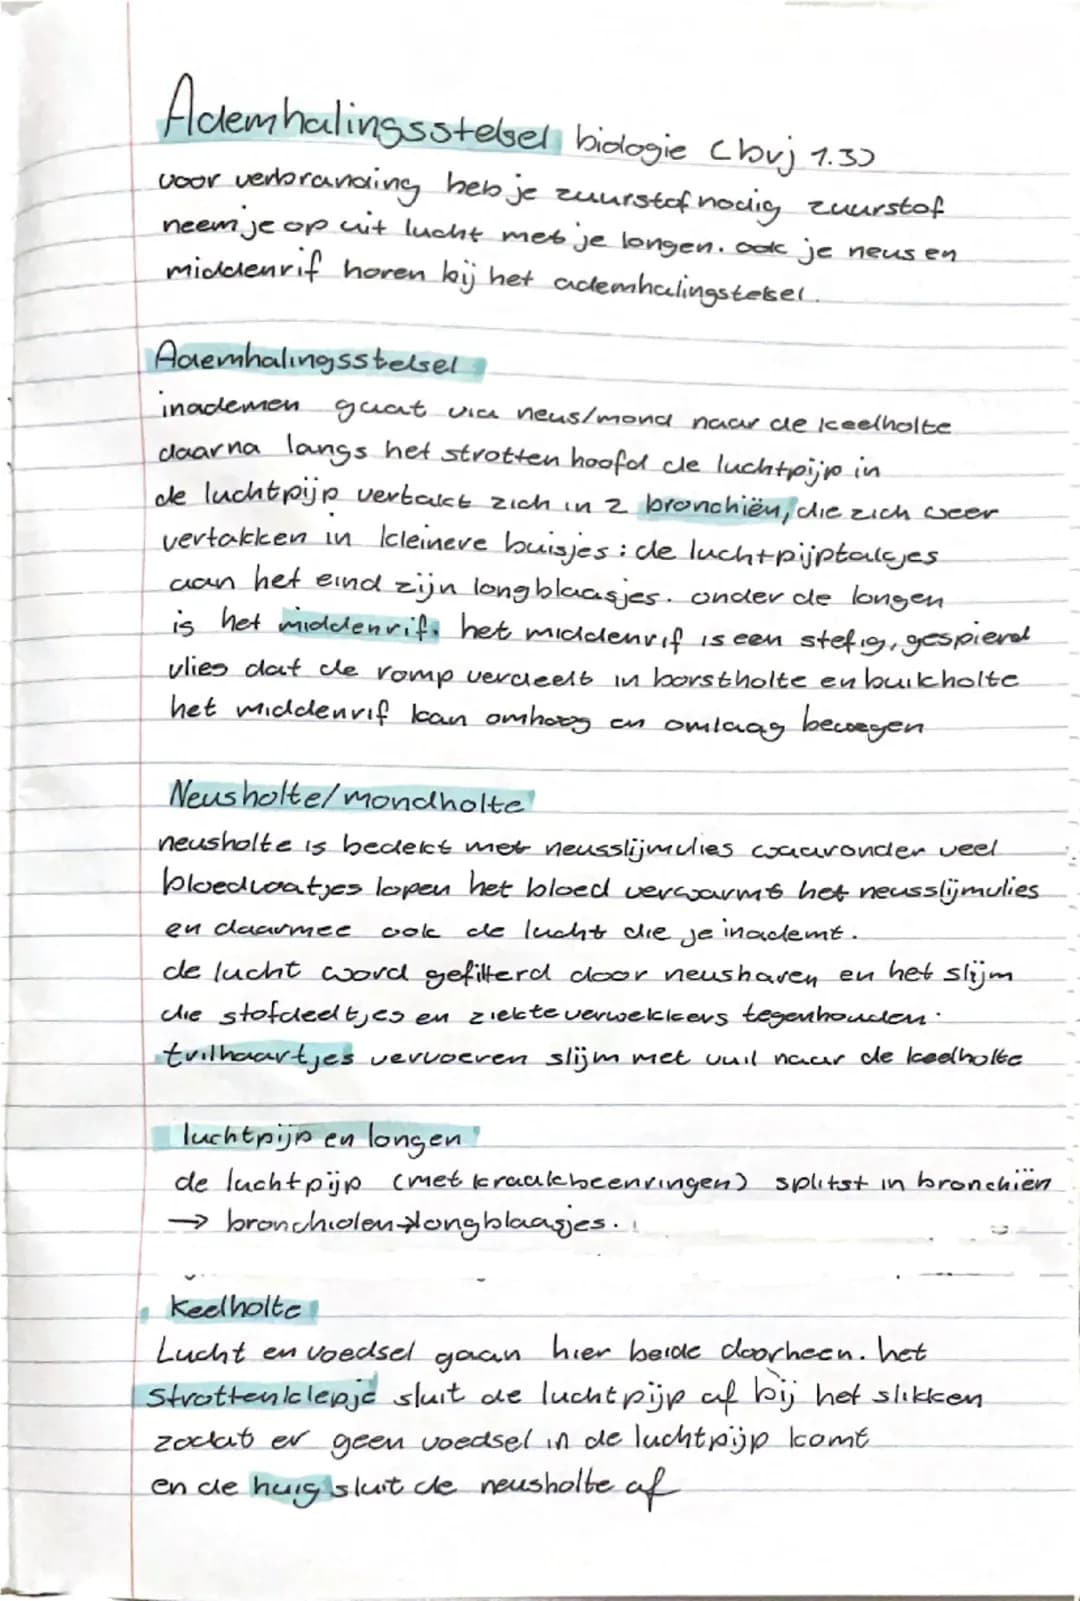 Ademhalingsstelsel biologie (bvj 1.3)
voor verbranding heb je zuurstof nodig zuurstof
neem je op uit lucht met je longen. ook je neus en
middenrif horen bij het ademhalingstelsel.
Ademhalingsstelsel
inademen gaat via neus/mond naar de keelholte
daarna langs het strottenhoofd de luchtpijp in
de luchtpijp vertakt zich in 2 bronchiën, die zich weer
vertakken in kleinere buisjes: de luchtpijptakjes
aan het eind zijn longblaasjes. onder de longen
is het middenrif. het middenrif is een stefig, gespierd
vlies dat de romp verdeelt in borstholte en buikholte
het middenrif kan omhoog en omlaag bewegen
Neusholte/mondholte
neusholte is bedekt met neusslijmvlies waaronder veel
bloedvaatjes lopen het bloed verwarmt het neusslijmvlies
en daarmee ook de lucht die je inademt.
de lucht word gefilterd door neusharen en het slijm
die stofdeeltjes en ziekteverwekkers tegenhouden.
trilhaartjes vervoeren slijm met vuil naar de keelholte
luchtpijp en longen
de luchtpijp (met kraakbeenringen) splitst in bronchiën
→ bronchiolen→longblaasjes.
Keelholte
Lucht en voedsel gaan hier beide doorheen. het
Strottenklepje sluit de luchtpijp af bij het slikken
zodat er geen voedsel in de luchtpijp komt
en de huig sluit de neusholte af